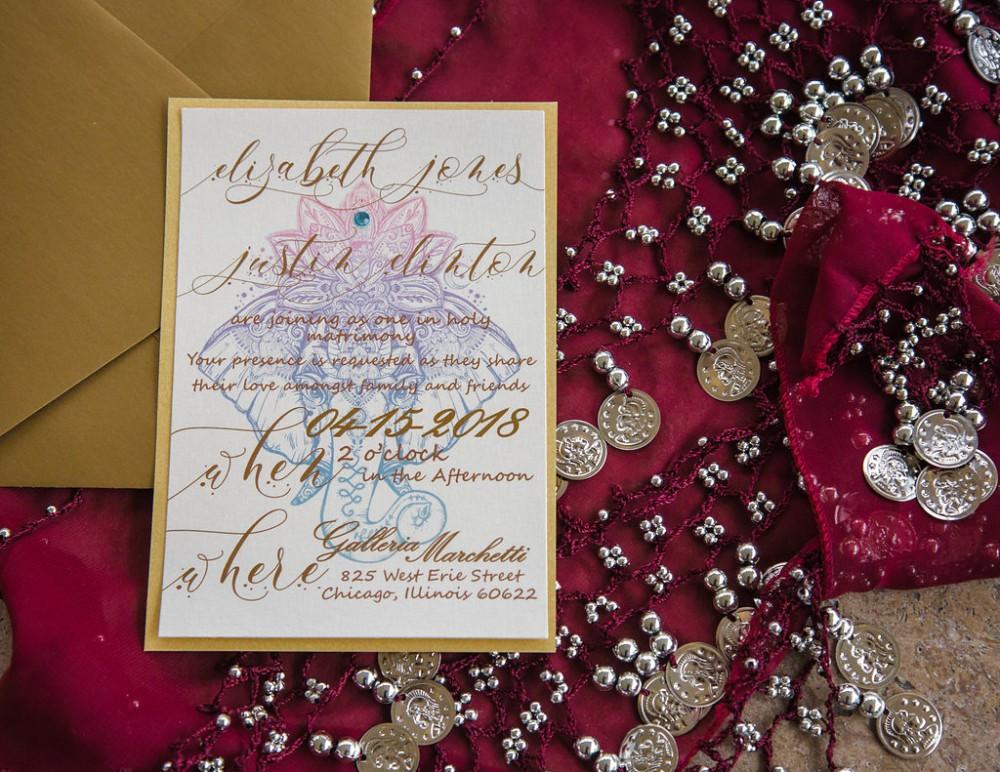 elizabeth jones
justin clinton
are joining as one in holy
matrimony
Your presence is requested as they share
their love amongst family and friends
when
04-15-2018
2 o'clock
in the Afternoon
where
Galleria Marchetti
825 West Erie Street
Chicago, Illinois 60622